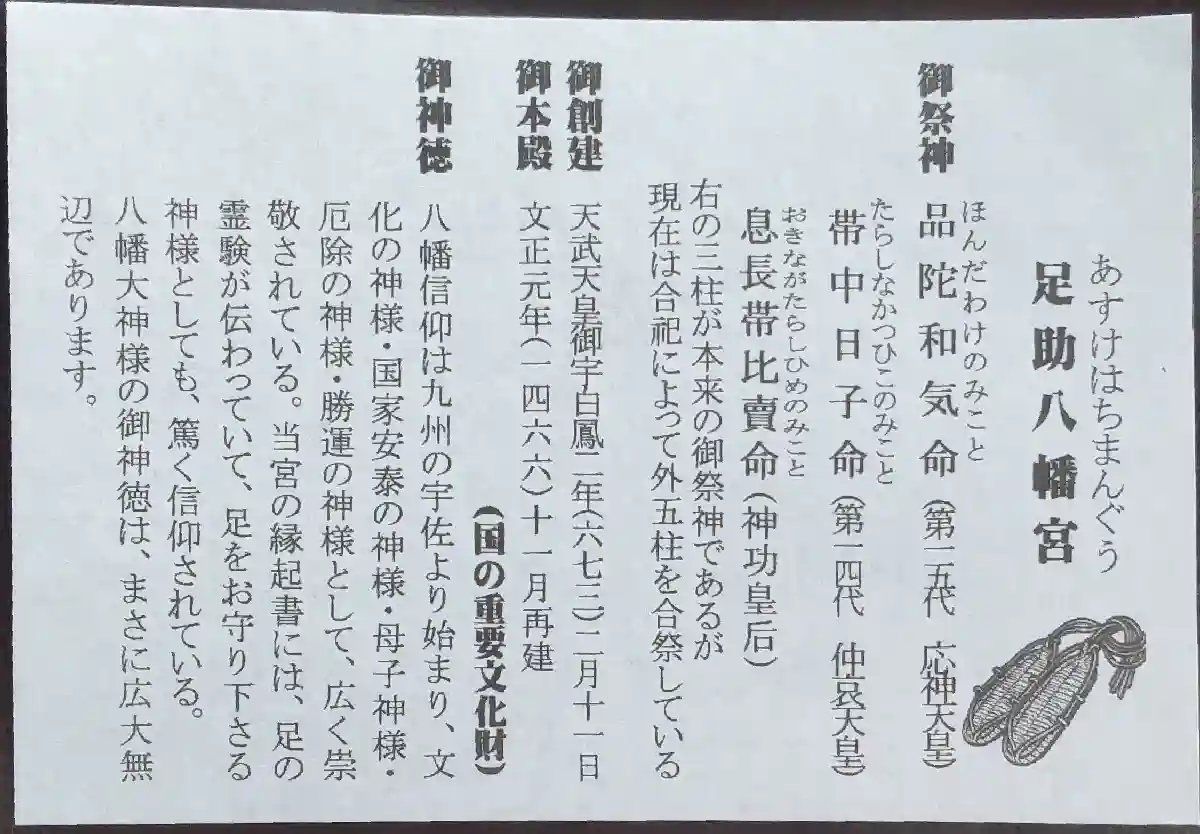 あすけはちまんぐう
足助八幡宮
ほんだわけのみこと
御祭神 品陀和気命(第一五代 応神天皇)
たらしなかつひこのみこと
帯中日子命(第一四代 仲哀天皇)
おきながたらしひめのみこと
息長帯比賣命(神功皇后)
右の三柱が本来の御祭神であるが
現在は合祀によって外五柱を合祭している
御創建 天武天皇御宇白鳳二年(六七三)二月十一日
御本殿 文正元年(一四六六)十一月再建
(国の重要文化財)
御神徳 八幡信仰は九州の宇佐より始まり、文
化の神様・国家安泰の神様・母子神様・
厄除の神様・勝運の神様として、広く崇
敬されている。当宮の縁起書には、足の
霊験が伝わっていて、足をお守り下さる
神様としても、篤く信仰されている。
八幡大神様の御神徳は、まさに広大無
辺であります。